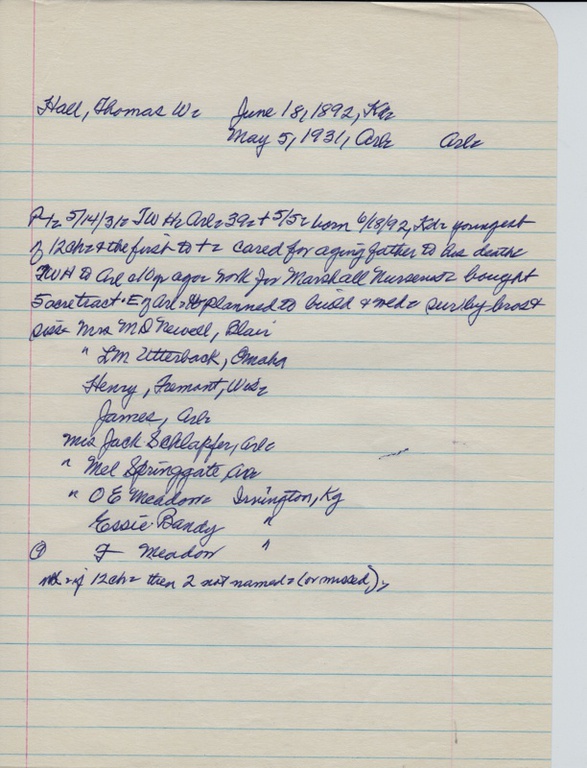 Hall, Thomas W. June 18, 1892, Ky.
May 5, 1931, Arl. Arl.
5/14/31. TWH. Arl. 39. + 5/5. born 6/18/92, Ky. youngest
of 12 ch. & the first to +. cared for aging father to his death.
TWH to Arl ago. work for Marshall Nurseries. bought
5 acre tract. E of Arl. planned to build & wed. surv by bros &
sis. Mrs MD Newell, Blair
" LM Utterback, Omaha
Henry, Fremont, Wis.
James, Arl.
Mrs Jack Schlapfer, Arl.
" Mel Springgate,
" OE Meadow. Irvington, Ky
Essie Bandy "
Meadow "
if 12 ch. then 2 not named. (or missed).